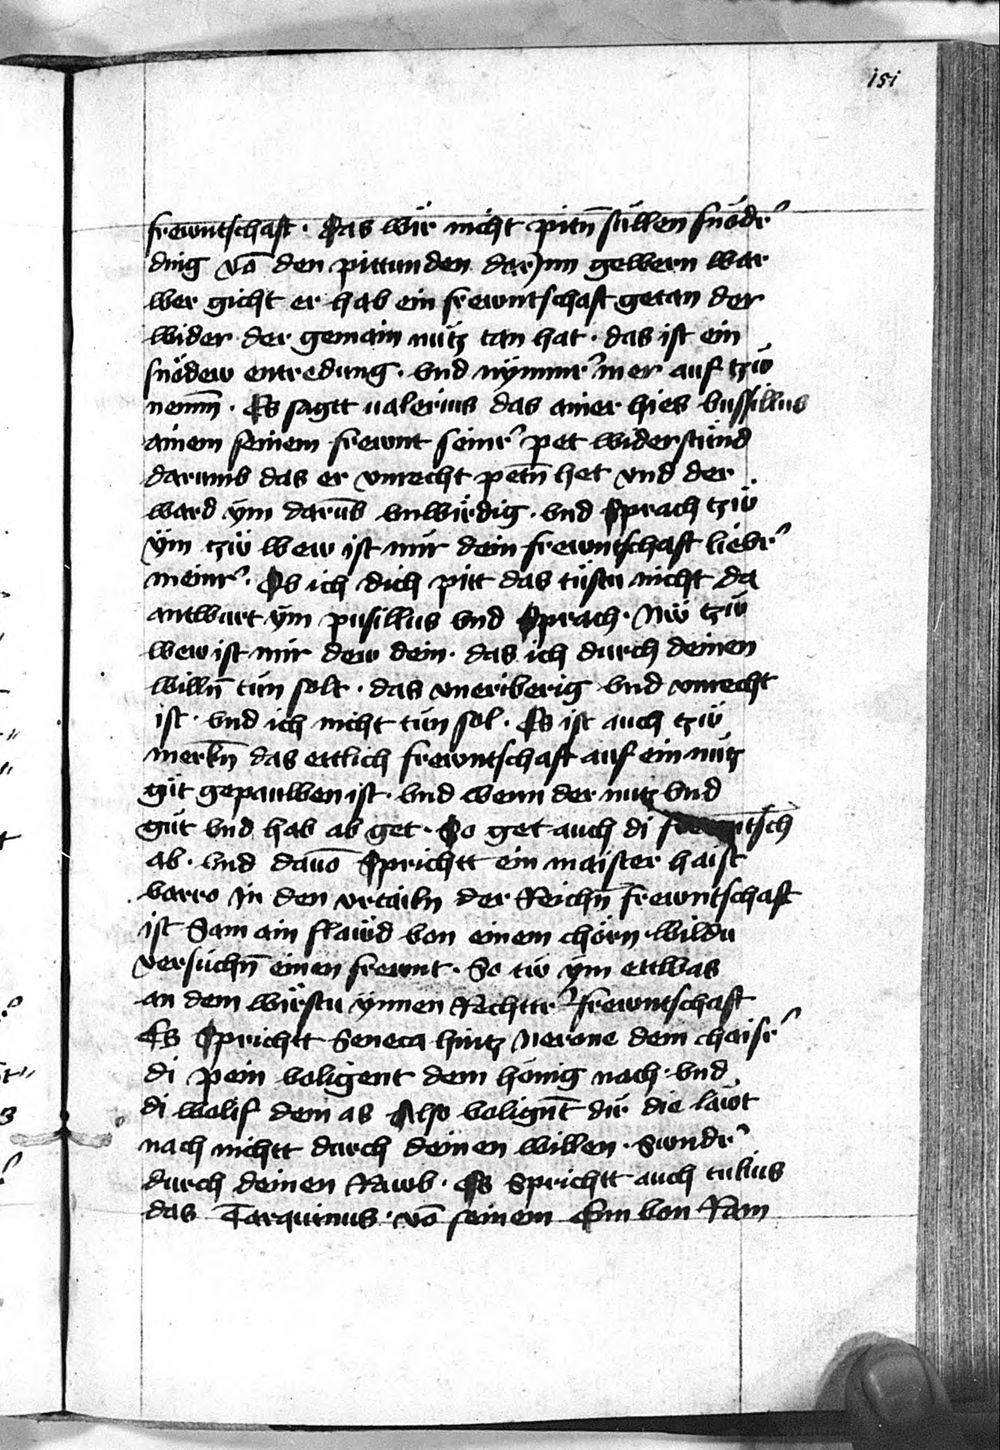 151
frewntschaft · Das wir nicht pitn̄ süllen snödr᾽
ding vō den pittunden dar Inn gewern war
wer gicht er hab ein frewntschaft getan der
wider der gemain nütz tan hat · das ist ein
snödew entredung · vnd nymmr᾽ mer auf tzẅ
nemm̄ · Es sagtt ualerius das ainer hies bussillus
ainem seinem frewnt seinr᾽ pet widerstünd
darumb das er vnrecht petn̄ het vnd der
ward ÿm darūb vnwirdig · vnd Sprach tzẅ
ÿm tzẅ wew ist mir dein frewntschaft liebr᾽
meinr᾽ · Ob ich dich pitt das tüstu nicht da
antwurt ÿm pusillus vnd Sprach · Nẅ tzẅ
wew ist mir dew dein · das ich durch deinen
willn̄ tün solt · das vneriberig vnd vnrecht
ist · vnd ich nicht tün sol · Es ist auch tzẅ
merkn̄ das ettlich frewntschaft auf ein nutz
güt gepauwen ist · vnd wenn der nutz vnd
güt vnd hab ab get · So get auch di frewntsch
ab · vnd dauō Sprichtt ein maister haist
varro In den vrtailn der Reichn̄ frewntschaft
ist Sam ain flaẅd von einem chörn · wildu
versüchn̄ einen frewnt · So tw̄ ÿm ettwas
an dem wirstu ÿnnen Rechttr᾽ frewntschaft
Es Sprichtt Seneca hintz Nerone dem chaisr᾽
di pein voligent dem hönig nach · vnd
di wolif dem as Also volignt̄ dir die law̄t
nach nichtt durch deinen willen · Sundr᾽
durch deinen Rawb · Es Sprichtt auch tulius
das Tarquinus · vō seinem Enn von Ram